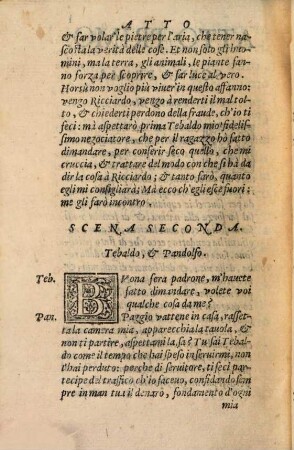 ATTO
& far volar le pietre per l'aria, che tener na-
scosta la verità delle cose. Et non solo gli huo-
mini, ma la terra, gli animali, le piante fan-
no forza per scoprire, & far luce al vero.
Horsù non voglio più viuer in questo affanno:
vengo Ricciardo, vengo à renderti il mal tol-
to, & chiederti perdono della fraude, ch'io ti
feci: mà aspettarò prima Tebaldo mio fidelis-
simo negociatore, che per il ragazzo hò fatto
dimandare, per conferir seco quello, che mi
cruccia, & trattare del modo con che si hà da
dir la cosa à Ricciardo; & tanto farò, quanto
egli mi consigliarà: Mà ecco ch'egli esce fuori:
me gli farò incontro.
SCENA SECONDA.
Tebaldo, & Pandolfo.
Teb. BVona sera padrone, m'hauete
fatto dimandare, volete voi
qualche cosa da me?
Pan. Paggio vattene in casa, rasset-
ta la camera mia, apparecchia la tauola, &
non ti partire, aspettami la, sa? Tu sai Tebal-
do come il tempo che hai speso in seruirmi, non
l'hai perduto: perche di seruitore, ti feci par-
tecipe del traffico ch'io faceuo, confidando sem
pre in man tua il denaro, fondamento d'ogni
mia